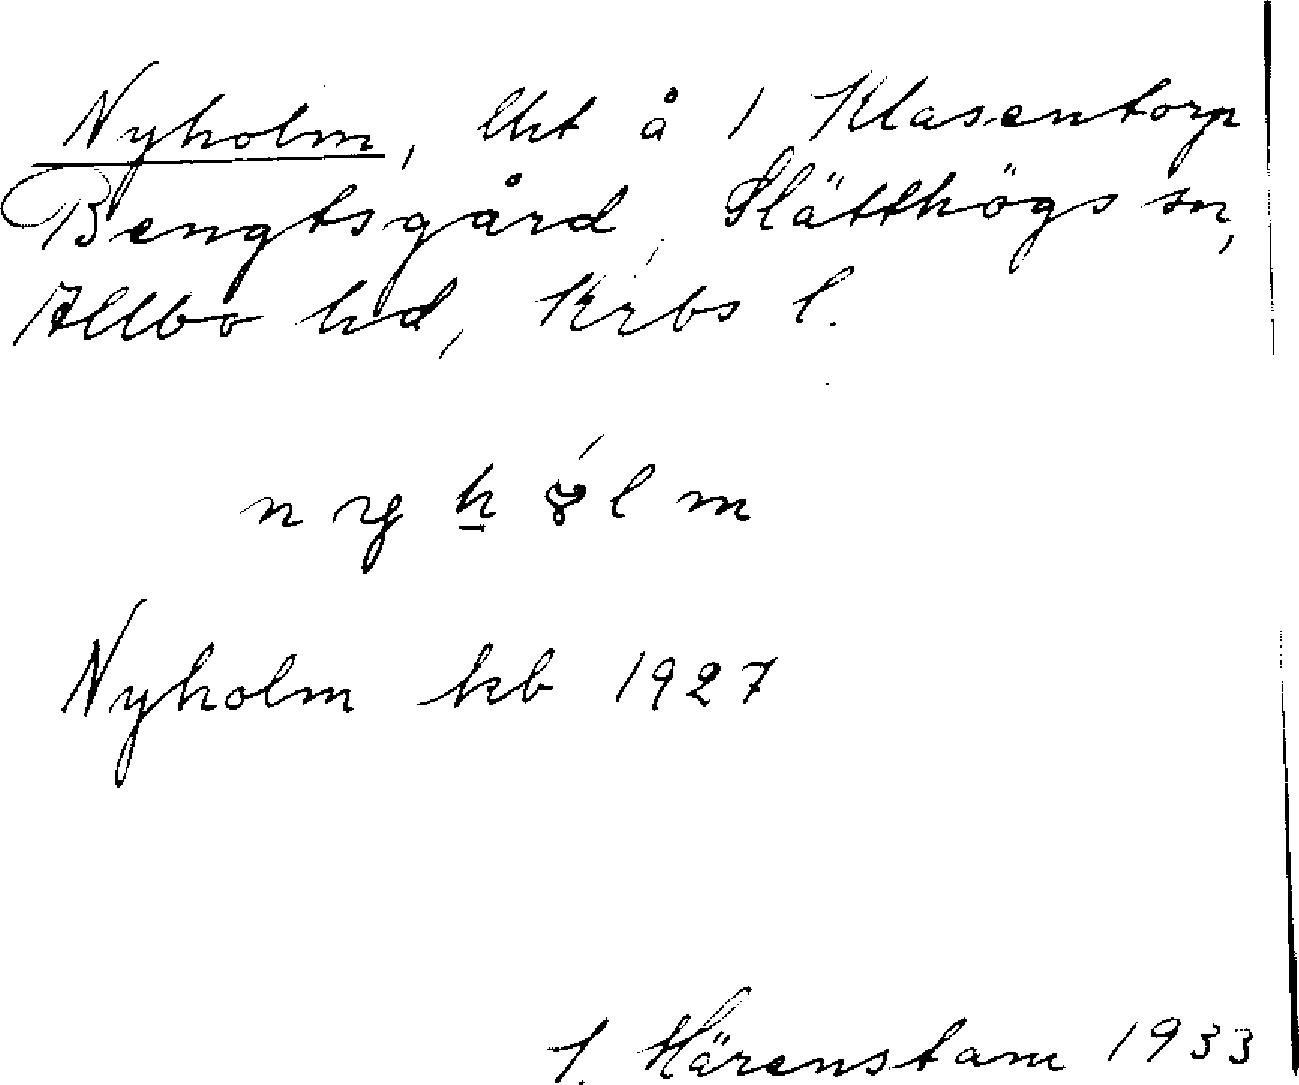 Nyholm, lht å 1 Klasentorp
Bengtsgård, Slätthögs sn,
Allbo hd, Krbs l.
Nyholm kb 1927
Härenstam 1933